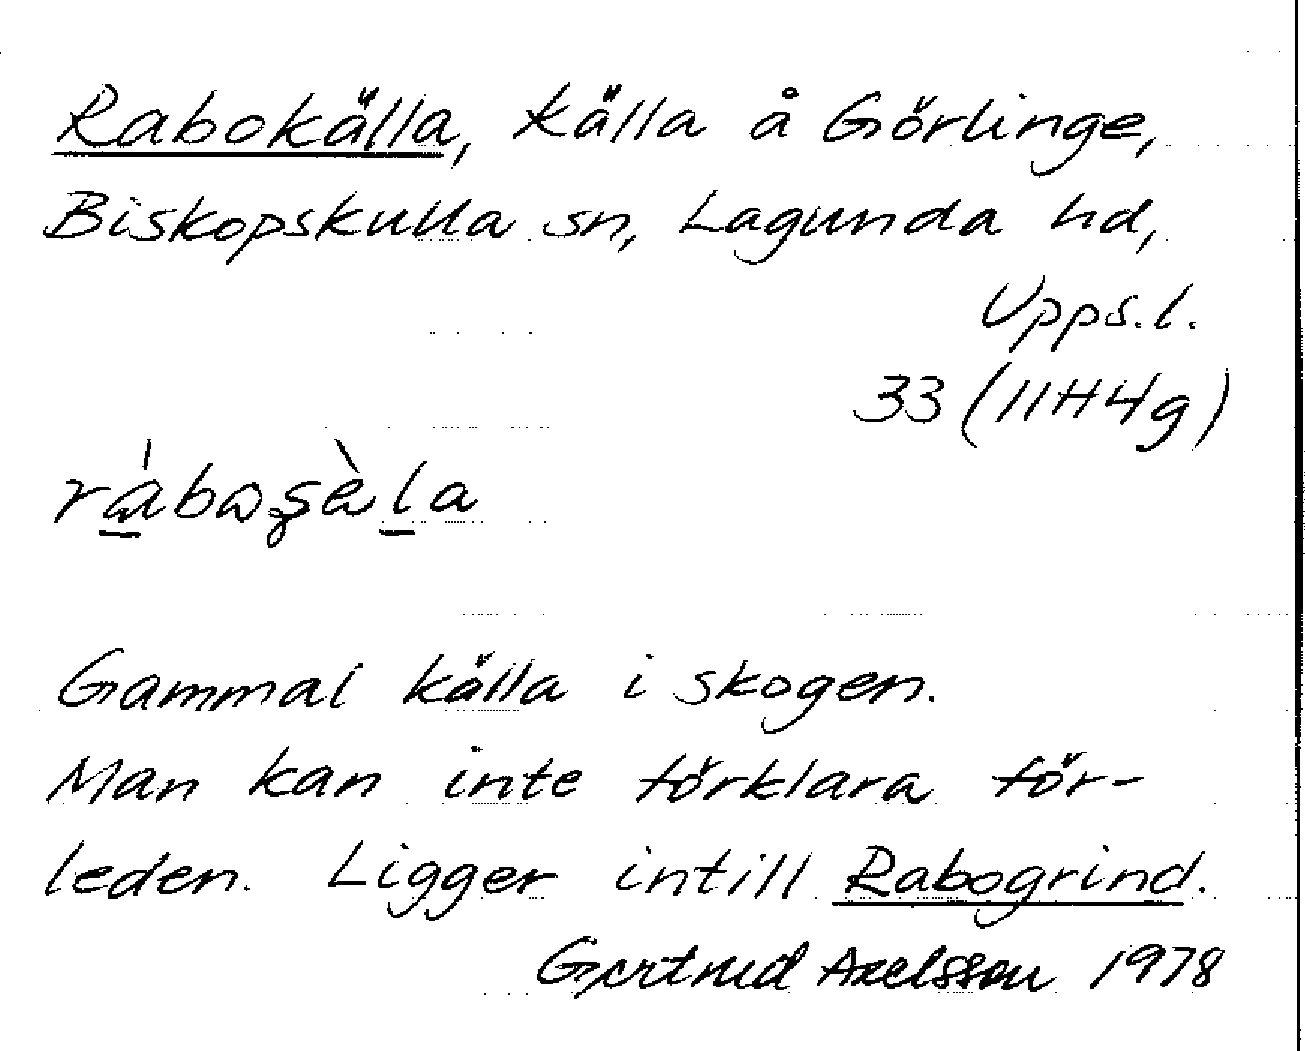 Rabokälla, källa å Görlinge,
Biskopskulla sn, Lagunda hd,
Upps.l.
33 (11H4g)
Gammal källa i skogen.
Man kan inte förklara för-
leden. Ligger intill Rabogrind.
Gertrud Axelsson 1978